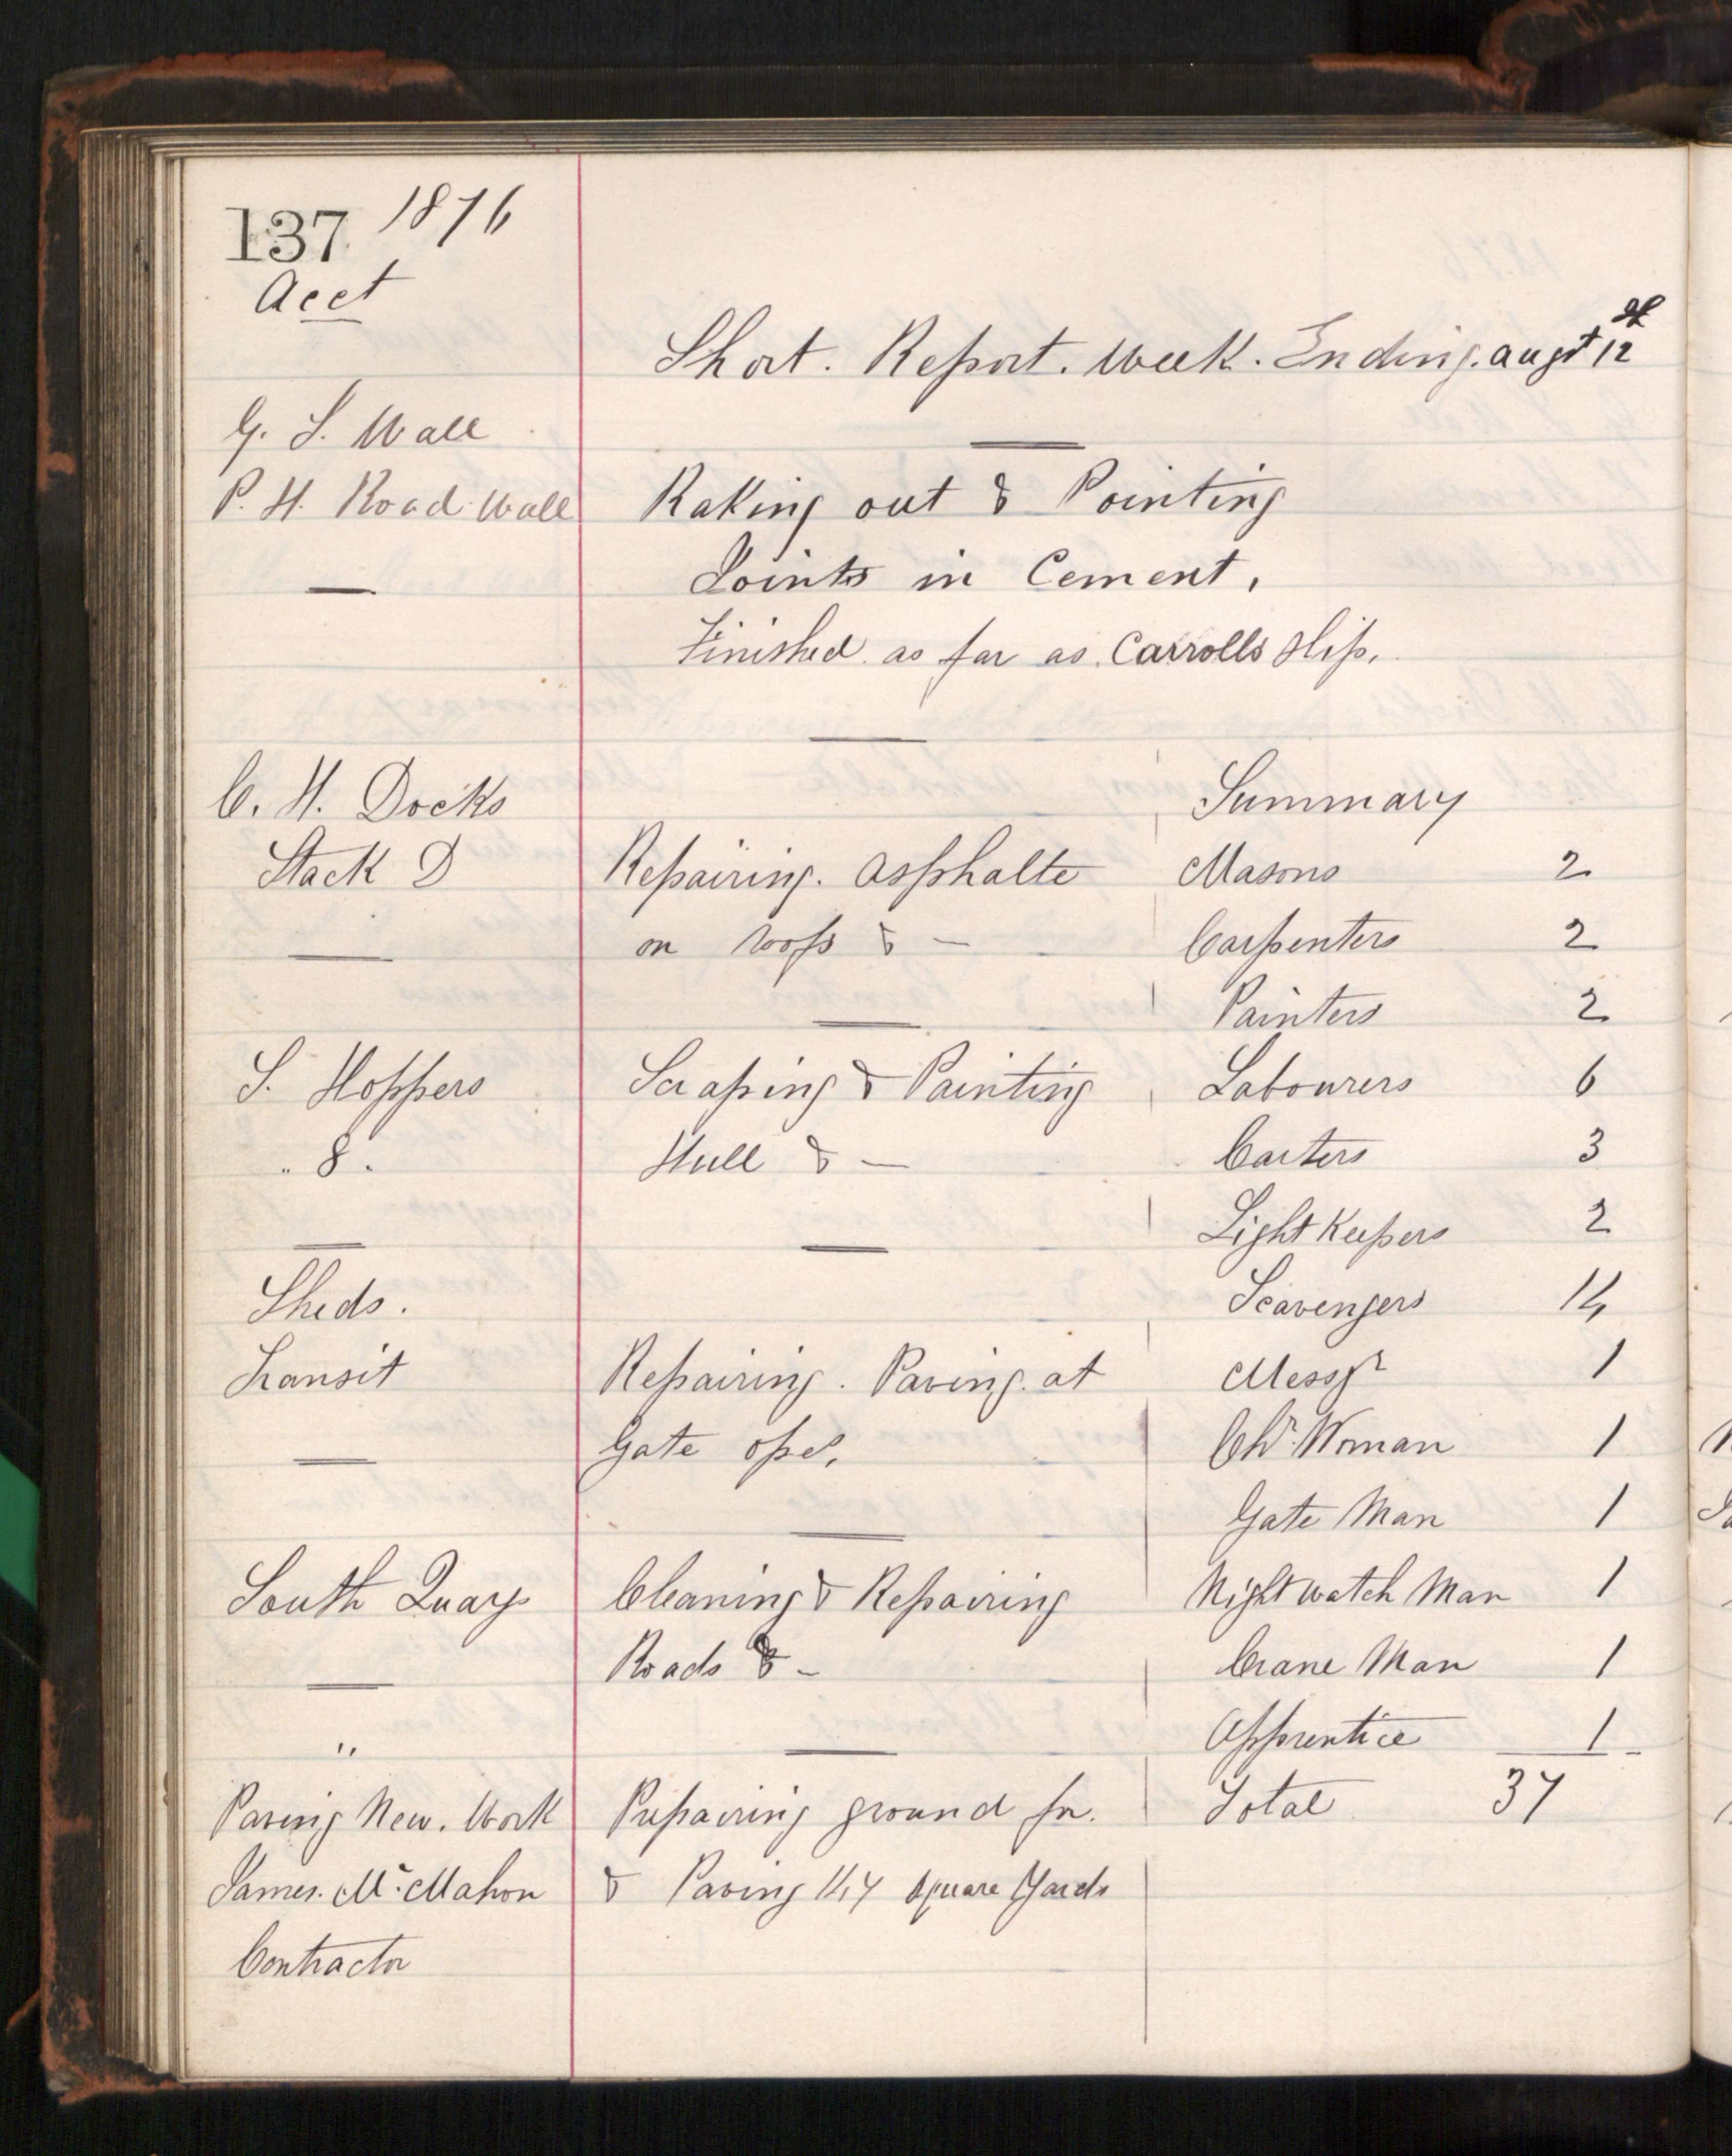 137 1876
Acct
Short. Report. Week. Ending. augt 12th
G. S. Wall
P. H. Road Wall Raking out & Pointing
Joints in Cement,
Finished as far as Carrolls Slip.
C. H. Docks Summary
Stack D Repairing. Asphalte Masons 2
on roofs & — Carpenters 2
Painters 2
S. Hoppers Scraping & Painting Labourers 6
" 8 " Hull & — Carters 3
Light Keepers 2
Sheds. Scavengers 14
Transit Repairing. Paving at Messgr 1
Gate opes, Chr Woman 1
Gate Man 1
South Quays Cleaning & Repairing Night watch Man 1
Roads & — Crane Man 1
" Apprentice 1
Paving New. Work Preparing ground for. Total 37
James. Mc. Mahon & Paving 147 square Yards
Contractor